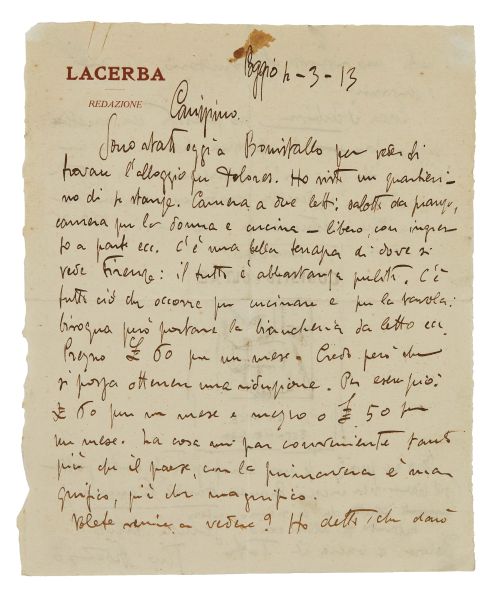 LACERBA
REDAZIONE
Poggio 4-3-13
Carissimo.
Sono stato oggi a Bonistallo per vedere di
trovare l'alloggio per Dolores. Ho visto un quartieri-
no di 4 stanze. Camera a due letti, salotto da pranzo,
camera per la donna e cucina - libero, con ingres-
so a parte ecc. C'è una bella terrazza di dove si
vede Firenze: il tutto è abbastanza pulito. C'è
tutto ciò che occorre per cucinare e per la tavola:
bisogna però portare la biancheria da letto ecc.
Prezzo £ 60 per un mese. Credo però che
si possa ottenere una riduzione. Per esempio:
£ 60 per un mese e mezzo o £ 50 per
un mese. La cosa mi par conveniente tanto
più che il paese, con la primavera è ma-
gnifico, più che magnifico.
Volete venire a vedere? Ho detto che darò